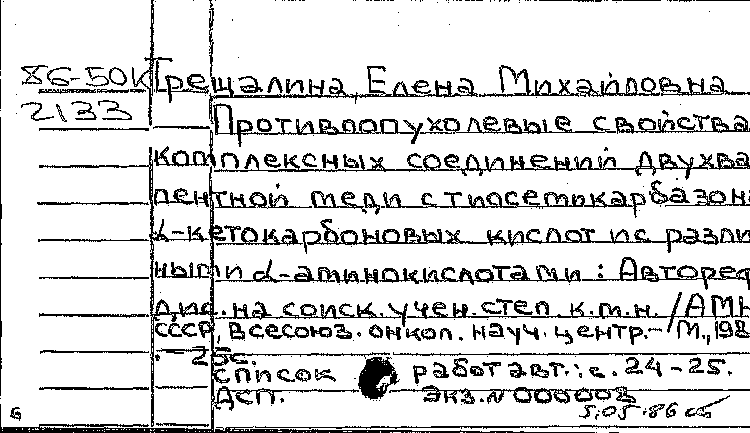 86-50К Трещалина, Елена Михайловна
2133 Противоопухолевые свойства
комплексных соединений двухва
лентной меди с тиосемикарбазона
α-кетокарбоновых кислот и с разли
ными α-аминокислотами : Автореф
дис. на соиск. учен. степ. к.м.н. /АМН
СССР, Всесоюз. онкол. науч. центр.- М., 198
.- 25с.
Список работ авт.: с. 24-25.
ДСП. Экз. N 000003
6 5.05.86